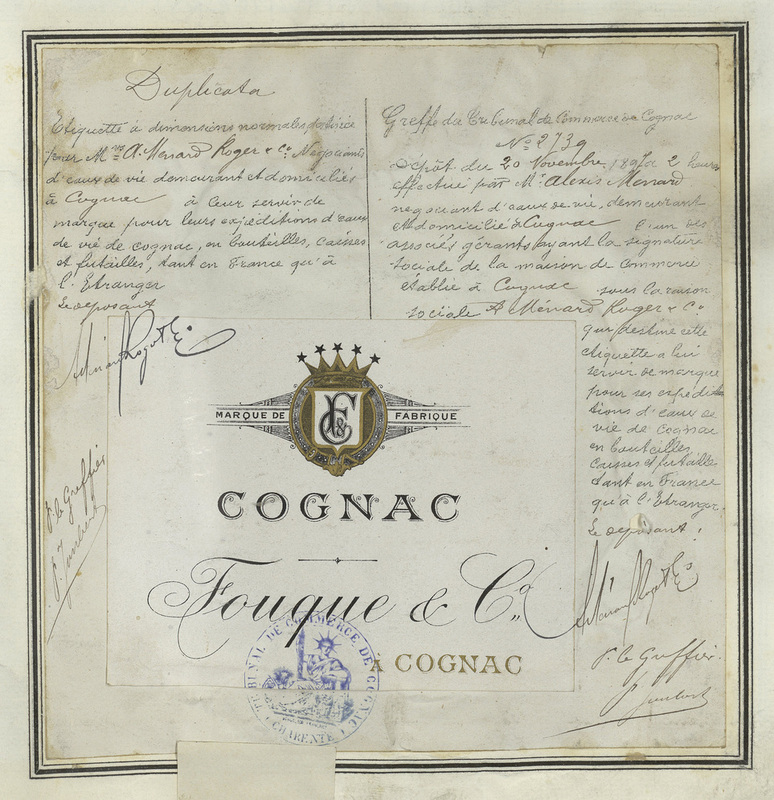 Duplicata
Etiquette à dimensions normales destinée
pour Mrs A. Ménard Roger & Co Négociants
d'eaux de vie demeurant et domiciliés
à Cognac à leur servir de
marque pour leurs expéditions d'eaux
de vie de cognac, en bouteilles, caisses
et futailles, tant en France qu'à
l'Etranger
Le deposant
P. le Greffier
Greffe du Tribunal de Commerce de Cognac
No 2739
Depôt du 20 Novembre 2 heures
effectué par Mr Alexis Menard
negociant d'eaux de vie, demeurant
et domicilié à Cognac l'un des
associés gérants ayant la signature
sociale de la maison de Commerce
établie à Cognac sous la raison
sociale A Ménard Roger & Co
qui destine cette
etiquette à lui
servir de marque
pour ses expédi
tions d'eaux de
vie de cognac
en bouteilles
caisses et futailles
tant en France
qu'à l'Etranger.
Le deposant
P. le Greffier
MARQUE DE FABRIQUE
COGNAC
Fouque & Co
À COGNAC
TRIBUNAL DE COMMERCE DE COGNAC
CHARENTE